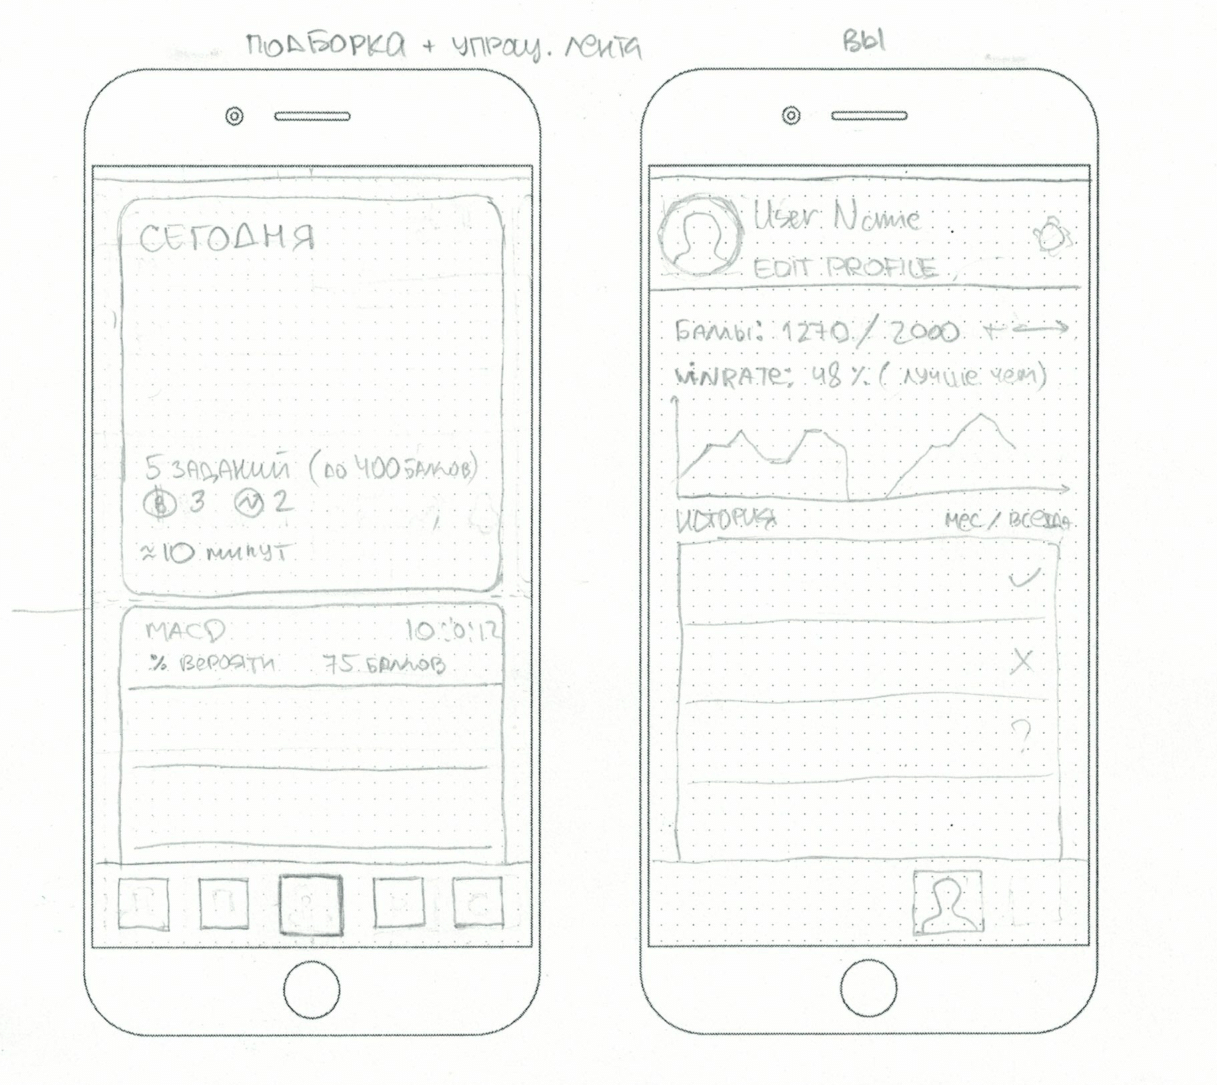 ПОДБОРКА + упрощ. лента
ВЫ
СЕГОДНЯ
5 ЗАДАНИЙ (до 400 баллов)
B 3 2
≈10 минут
MACD 10:0:12
% Вероятн 75 баллов
User Name
EDIT PROFILE
Баллы: 1270 / 2000 + →
WINRATE: 48 % ( лучше чем)
ИСТОРИЯ мес / всегда
?